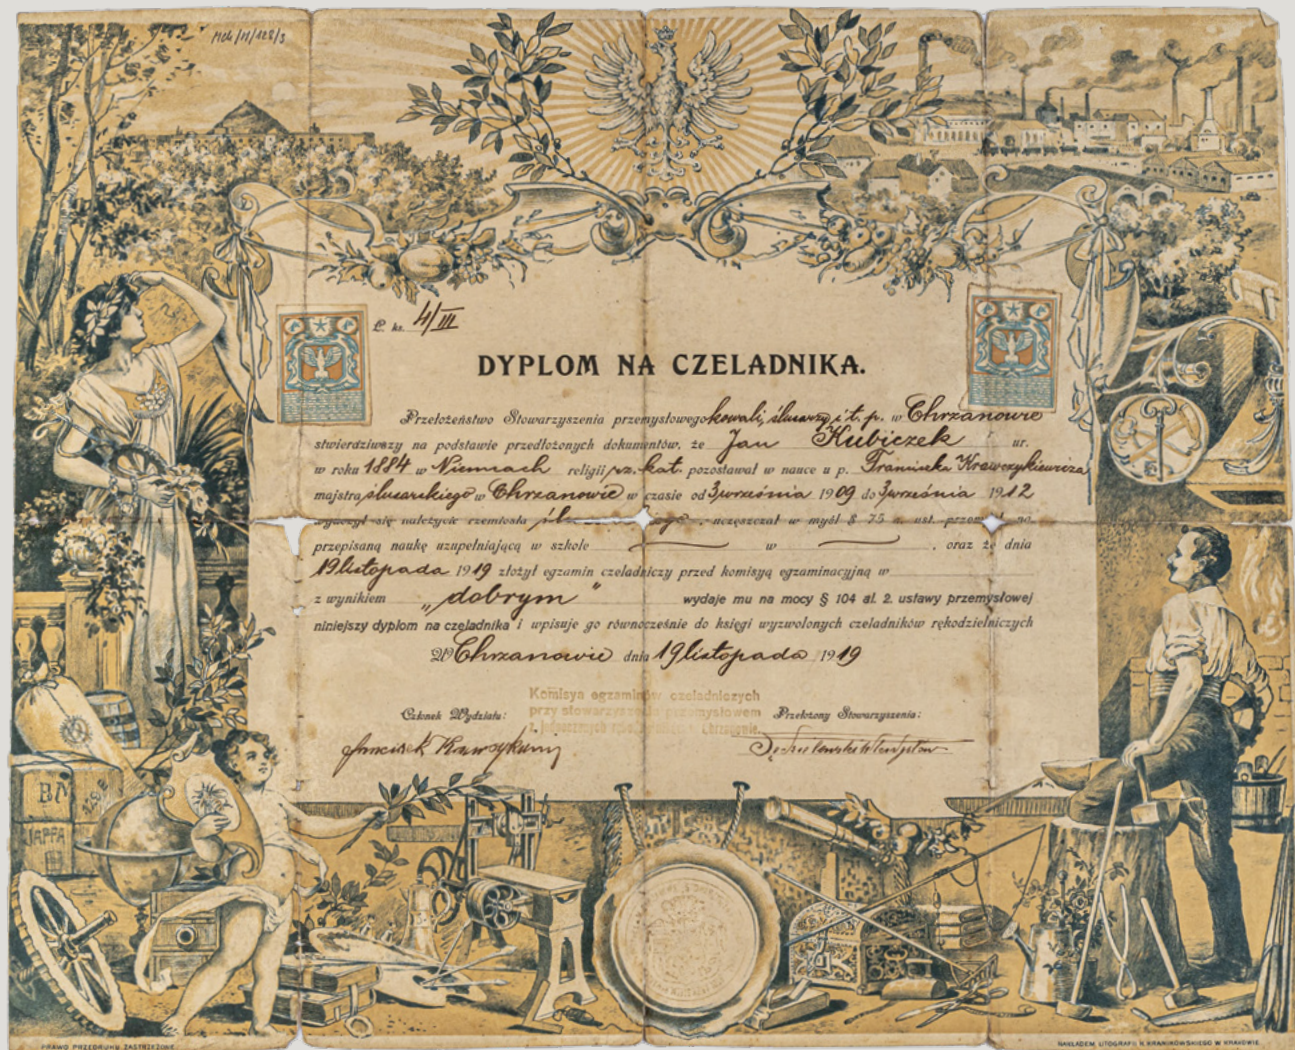 MCh/M/128/3
L. ks. 4/III
DYPLOM NA CZELADNIKA.
Przełożeństwo Stowarzyszenia przemysłowego kowali, ślusarzy i t. p. w Chrzanowie
stwierdziwszy na podstawie przedłożonych dokumentów, że Jan Kubiczek ur.
w roku 1884 w Niemcach religii rz. kat. pozostawał w nauce u p. Franciszka Krawczykiewicza
majstra ślusarskiego w Chrzanowie w czasie od 3 września 1909 do 3 września 1912
wyuczył się należycie rzemiosła uczęszczał w myśl § 75 a. ust.
przepisaną naukę uzupełniającą w szkole w , oraz że dnia
19 listopada 1919 złożył egzamin czeladniczy przed komisyą egzaminacyjną w
z wynikiem „dobrym" wydaje mu na mocy § 104 al. 2. ustawy przemysłowej
niniejszy dyplom na czeladnika i wpisuje go równocześnie do księgi wyzwolonych czeladników rękodzielniczych
W Chrzanowie dnia 19 listopada 1919
Komisya egzaminów czeladniczych
przy stowarzyszeniu przemysłowem
Członek Wydziału: Przełożony Stowarzyszenia:
BM
JAPPA
PRAWO PRZEDRUKU ZASTRZEŻONE
NAKŁADEM LITOGRAFII H. KRANIKOWSKIEGO W KRAKOWIE